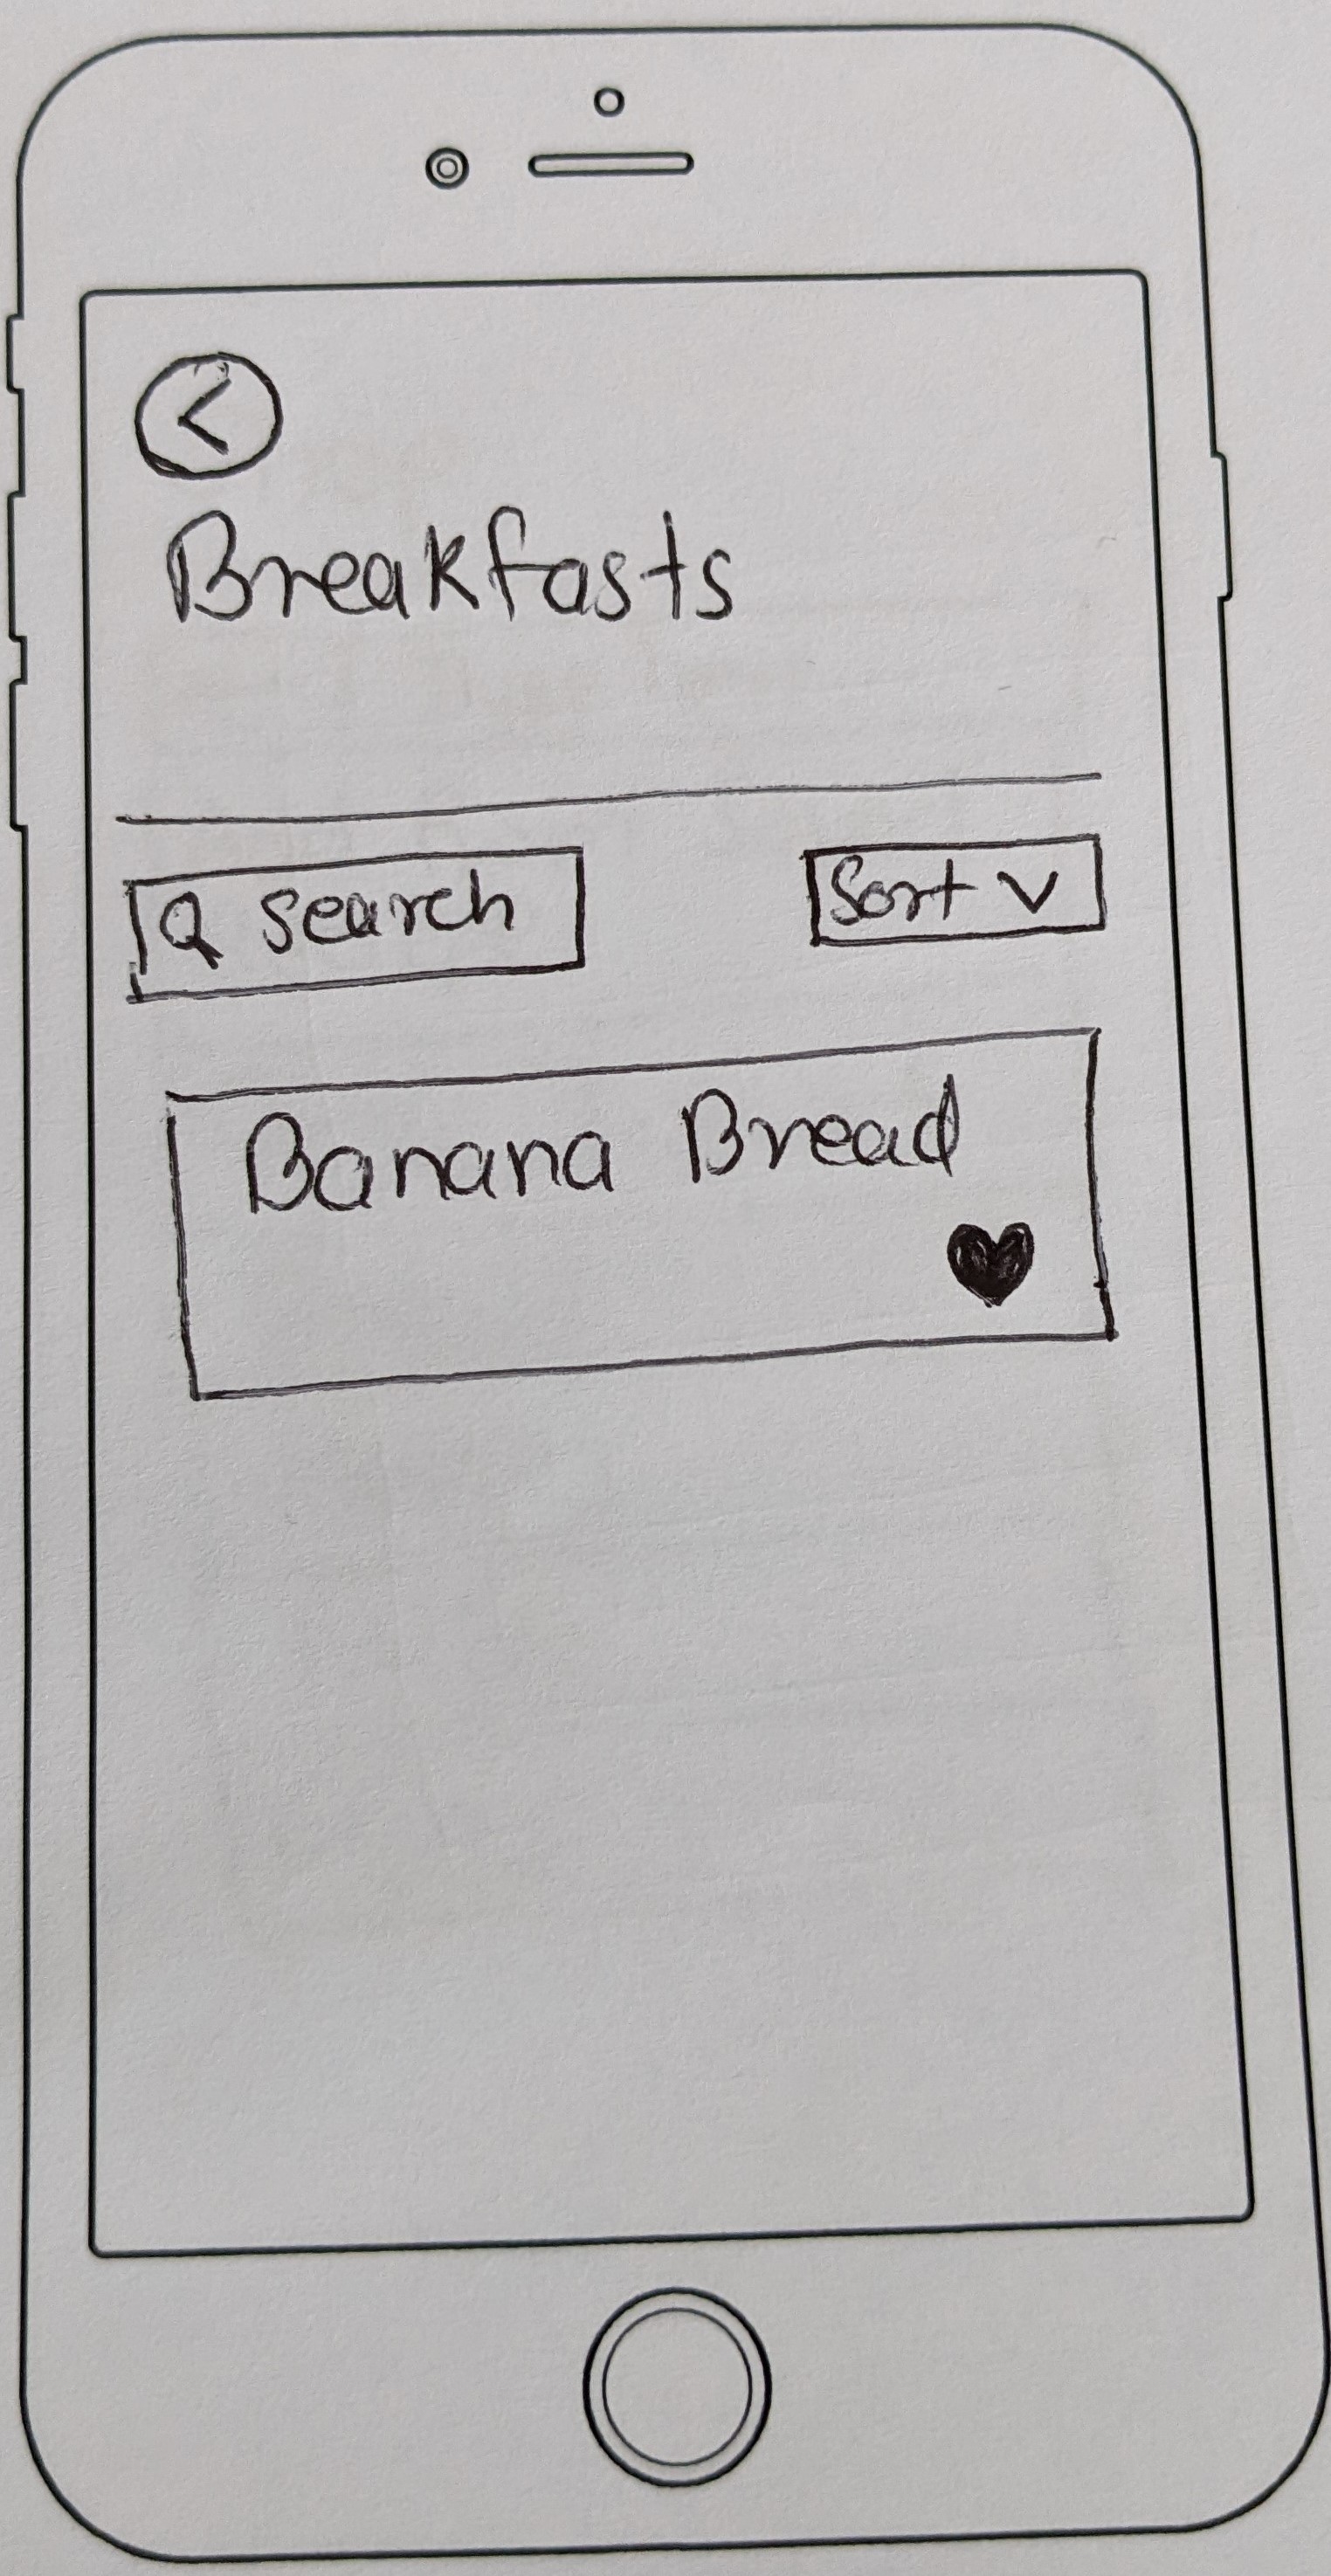 Breakfasts
search
Sort
Banana Bread